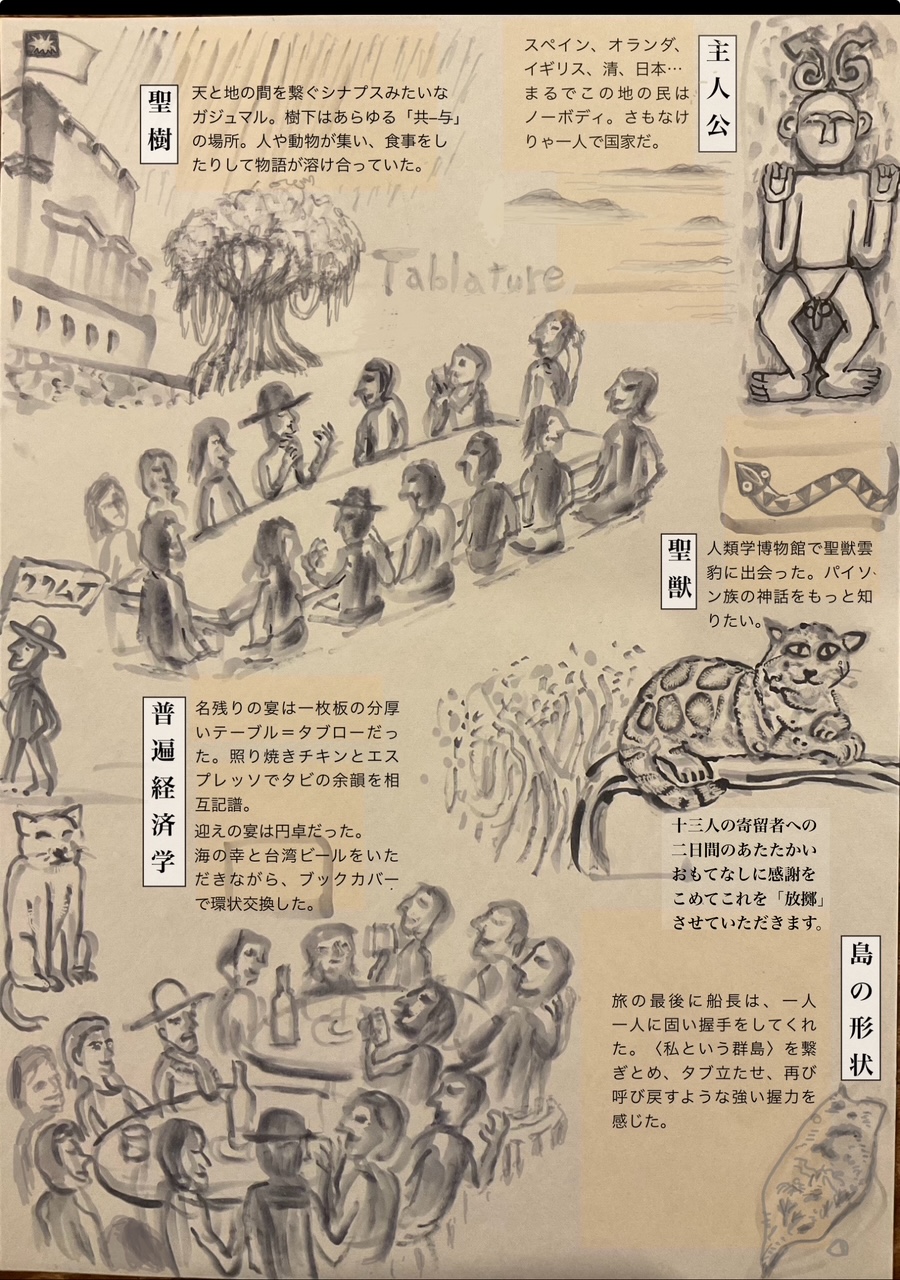 主人公
スペイン、オランダ、
イギリス、清、日本…
まるでこの地の民は
ノーボディ。さもなけ
りゃ一人で国家だ。
聖樹
天と地の間を繋ぐシナプスみたいな
ガジュマル。樹下はあらゆる「共–与」
の場所。人や動物が集い、食事をし
たりして物語が溶け合っていた。
Tablature
聖獣
人類学博物館で聖獣雲
豹に出会った。パイワ
ン族の神話をもっと知
りたい。
普遍経済学
名残りの宴は一枚板の分厚
いテーブル＝タブローだっ
た。照り焼きチキンとエス
プレッソでタビの余韻を相
互記譜。
迎えの宴は円卓だった。
海の幸と台湾ビールをいた
だきながら、ブックカバー
で環状交換した。
十三人の寄留者への
二日間のあたたかい
おもてなしに感謝を
こめてこれを「放擲」
させていただきます。
島の形状
旅の最後に船長は、一人
一人に固い握手をしてくれ
た。〈私という群島〉を繋
ぎとめ、タブ立たせ、再び
呼び戻すような強い握力を
感じた。